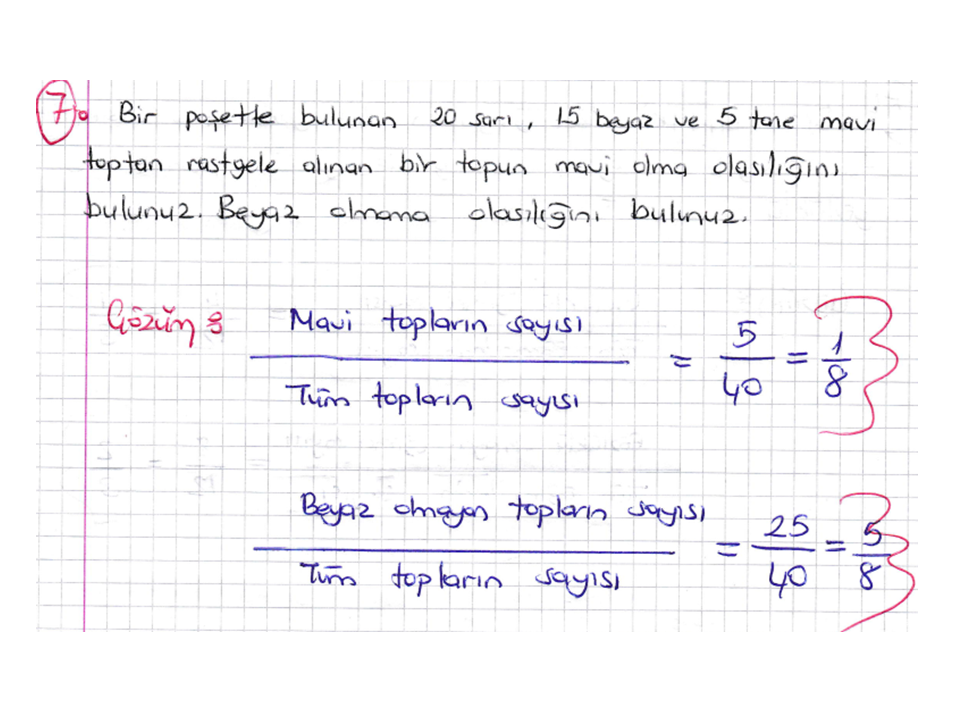 7. Bir poşette bulunan 20 sarı, 15 beyaz ve 5 tane mavi
toptan rastgele alınan bir topun mavi olma olasılığını
bulunuz. Beyaz olmama olasılığını bulunuz.
Çözüm : Mavi topların sayısı / Tüm topların sayısı = 5/40 = 1/8
Beyaz olmayan topların sayısı / Tüm topların sayısı = 25/40 = 5/8